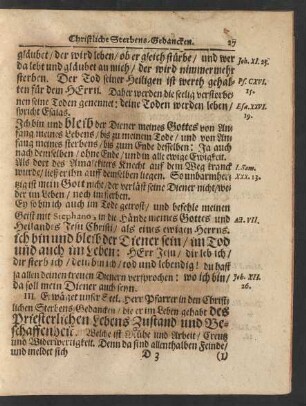 Christliche Sterbens-Gedancken. 27
gläubet / der wird leben / ob er gleich stürbe / und wer
da lebt und gläubet an mich / der wird nimmermehr Joh. XI. 25.
sterben. Der Tod seiner Heiligen ist werth gehal-
ten für dem HErrn. Daher werden die seelig verstorbe- Ps. CXVI. 15.
nen seine Toden genennet: deine Toden werden leben / Esa. XXVI. 19.
spricht Esaias.
Ich bin und bleib der Diener meines Gottes von An-
fang meines Lebens / biß zu meinem Tode / und von An-
fang meines Sterbens / biß zum Ende desselben: Ja auch
nach demselben / ohne Ende / und in alle ewige Ewigkeit.
Als dort des Amalekiters Knecht auf dem Weg kranck
wurde / ließ er ihn auf demselben liegen. So unbarmher- 1. Sam. XXX. 13.
zig ist mein Gott nicht / der verläst seine Diener nicht / we-
der im Leben / noch im sterben.
Ey so bin ich auch im Tod getrost / und befehle meinen
Geist mit Stephano, in die Hände meines Gottes und Act. VII.
Heilandes Jesu Christi / als eines ewigen Herrns.
ich bin und bleib der Diener sein / im Tod
und auch im Leben: HErr Jesu / dir leb ich /
dir sterb ich / Dein bin ich / tod und lebendig! du hast
ja allen deinen treuen Dienern versprochen: wo ich bin / Joh. XII. 26.
da soll mein Diener auch seyn.
III. Erwäget unser Seel. Herr Pfarrer in den Christ-
lichen Sterbens-Gedancken / die er im Leben gehabt des
Priesterlichen Lebens Zustand und Be-
schaffenheit. Welche ist Mühe und Arbeit / Creutz
und Widerwertigkeit. Denn da sind allenthalben Feinde /
und meldet sich
D 3 (1)